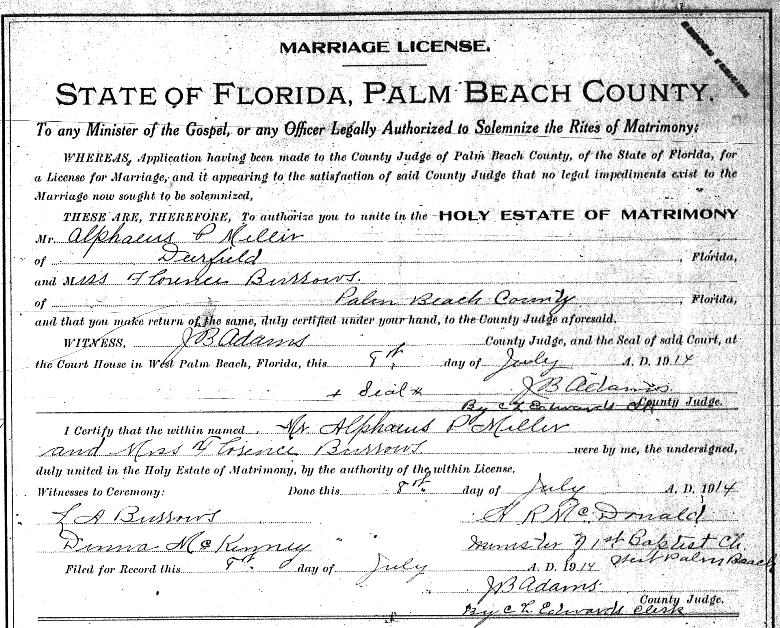 MARRIAGE LICENSE.
STATE OF FLORIDA, PALM BEACH COUNTY.
To any Minister of the Gospel, or any Officer Legally Authorized to Solemnize the Rites of Matrimony:
WHEREAS, Application having been made to the County Judge of Palm Beach County, of the State of Florida, for
a License for Marriage, and it appearing to the satisfaction of said County Judge that no legal impediments exist to the
Marriage now sought to be solemnized,
THESE ARE, THEREFORE, To authorize you to unite in the HOLY ESTATE OF MATRIMONY
Mr. Alphaeus P Miller
of Deerfield, Florida,
and Miss Florence Burrows.
of Palm Beach County, Florida,
and that you make return of the same, duly certified under your hand, to the County Judge aforesaid.
WITNESS, J B Adams County Judge, and the Seal of said Court, at
the Court House in West Palm Beach, Florida, this 8th day of July A. D. 1914
+ Seal + J B Adams
By C L Edwards County Judge.
I Certify that the within named Mr. Alphaeus P Miller
and Miss Florence Burrows were by me, the undersigned,
duly united in the Holy Estate of Matrimony, by the authority of the within License.
Witnesses to Ceremony: Done this 8th day of July A. D. 1914
L A Burrows A R McDonald
McKinney Minister of 1st Baptist Ch.
West Palm Beach
Filed for Record this 8th day of July A. D. 1914
J B Adams
County Judge.
By C L Edwards Clerk